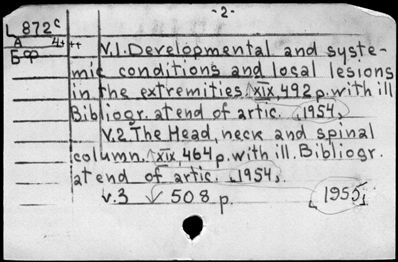 -2-
L 872c
A 4+ ++
БФ
V.1. Developmental and syste-
mic conditions and local lesions
in the extremities. XIX, 492 p. with ill
Bibliogr. at end of artic. 1954,
V.2. The Head, neck and spinal
column. XIX, 464 p. with ill. Bibliogr.
at end of artic. 1954,
v.3 508 p. 1955,